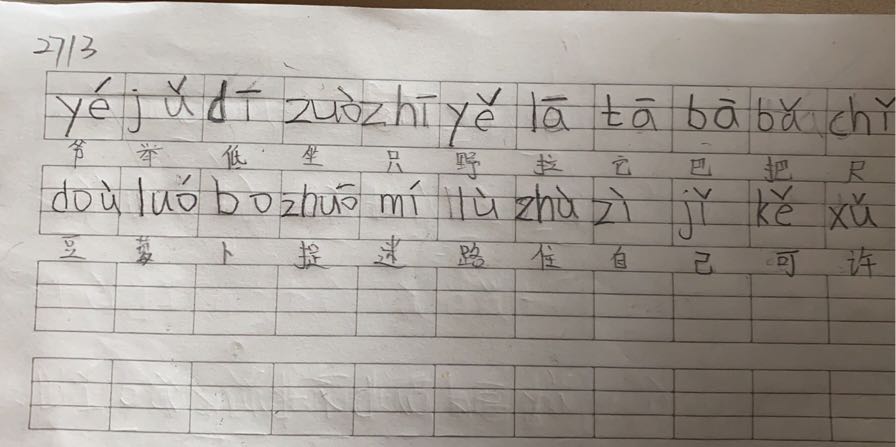 27/3
yé jǔ dī zuò zhī yě lā tā bā bǎ chǐ
爷 举 低 坐 只 野 拉 它 巴 把 尺
doù luó bo zhuō mí lù zhù zì jǐ kě xǔ
豆 萝 卜 捉 迷 路 住 自 己 可 许